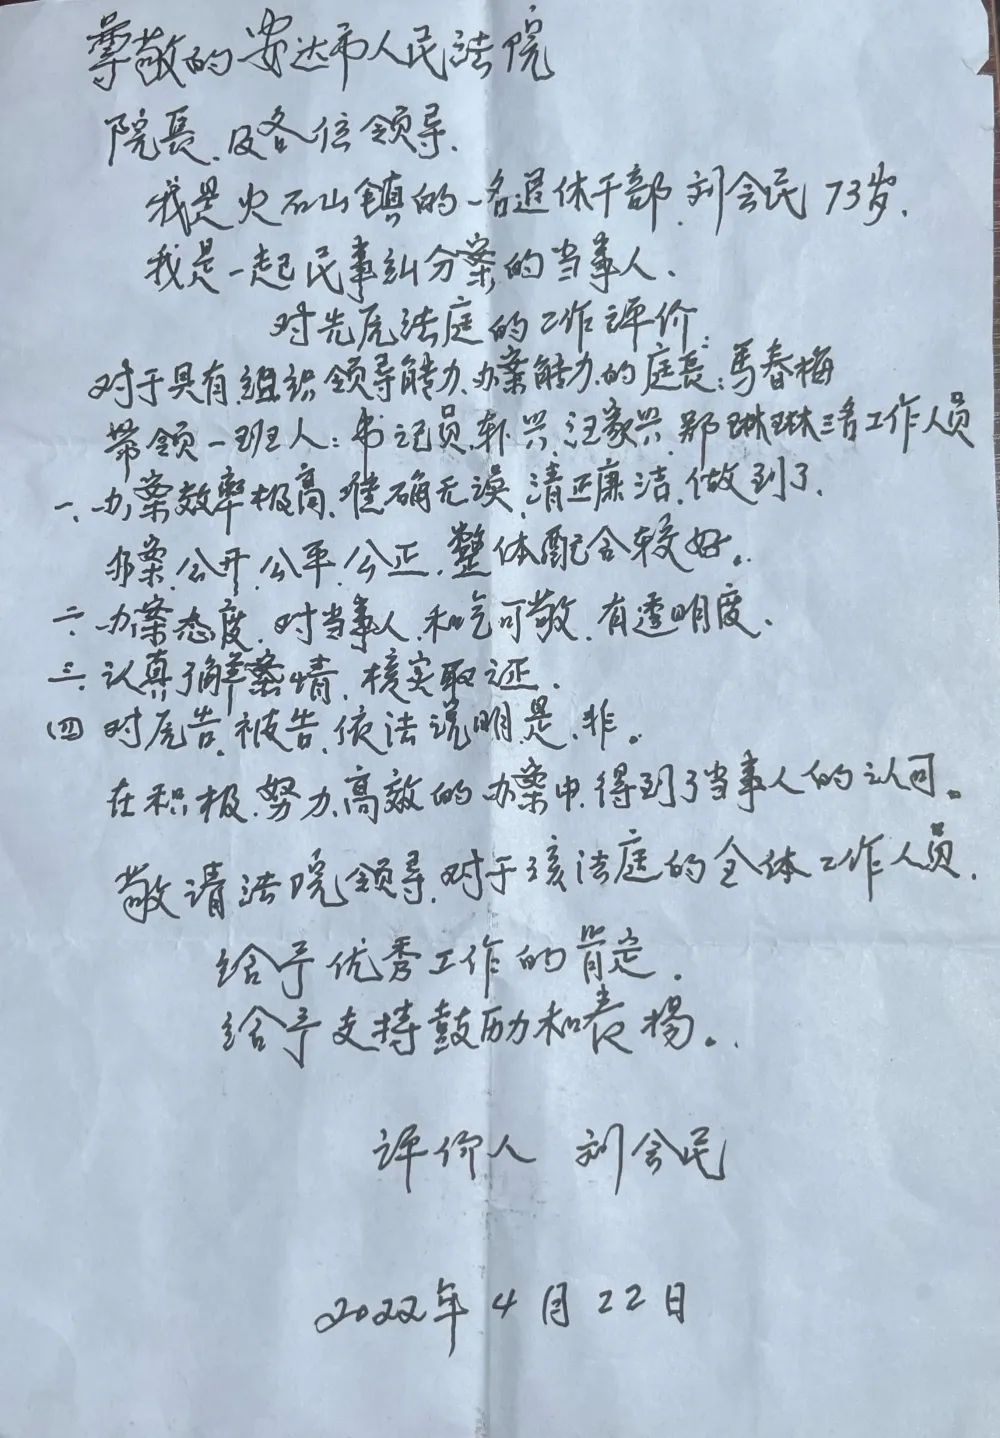 尊敬的安达市人民法院
院長.及各位领导.
我是火石山镇的一名退休干部.刘会民73岁.
我是一起民事纠分案的当事人.
对先尧法庭的工作评价:
对于具有.组织领导能力.办案能力.的庭長:馬春梅
带领一班人:书记员.郭兴.汪家兴.郑琳琳三名工作人员
一、办案效率极高.准确无误.清正廉洁.做到了.
办案.公开.公平.公正.整体配合较好。
二、办案态度.对当事人.和气可敬.有透明度.
三、认真了解案情.核实取证.
四 对原告.被告.依法说明.是.非。
在积极.努力.高效的办案中.得到了当事人的认可。
敬请法院领导.对于该法庭的全体工作人员.
给予优秀工作的肯定.
给予支持鼓励和表杨。
评价人 刘会民
2022年4月22日